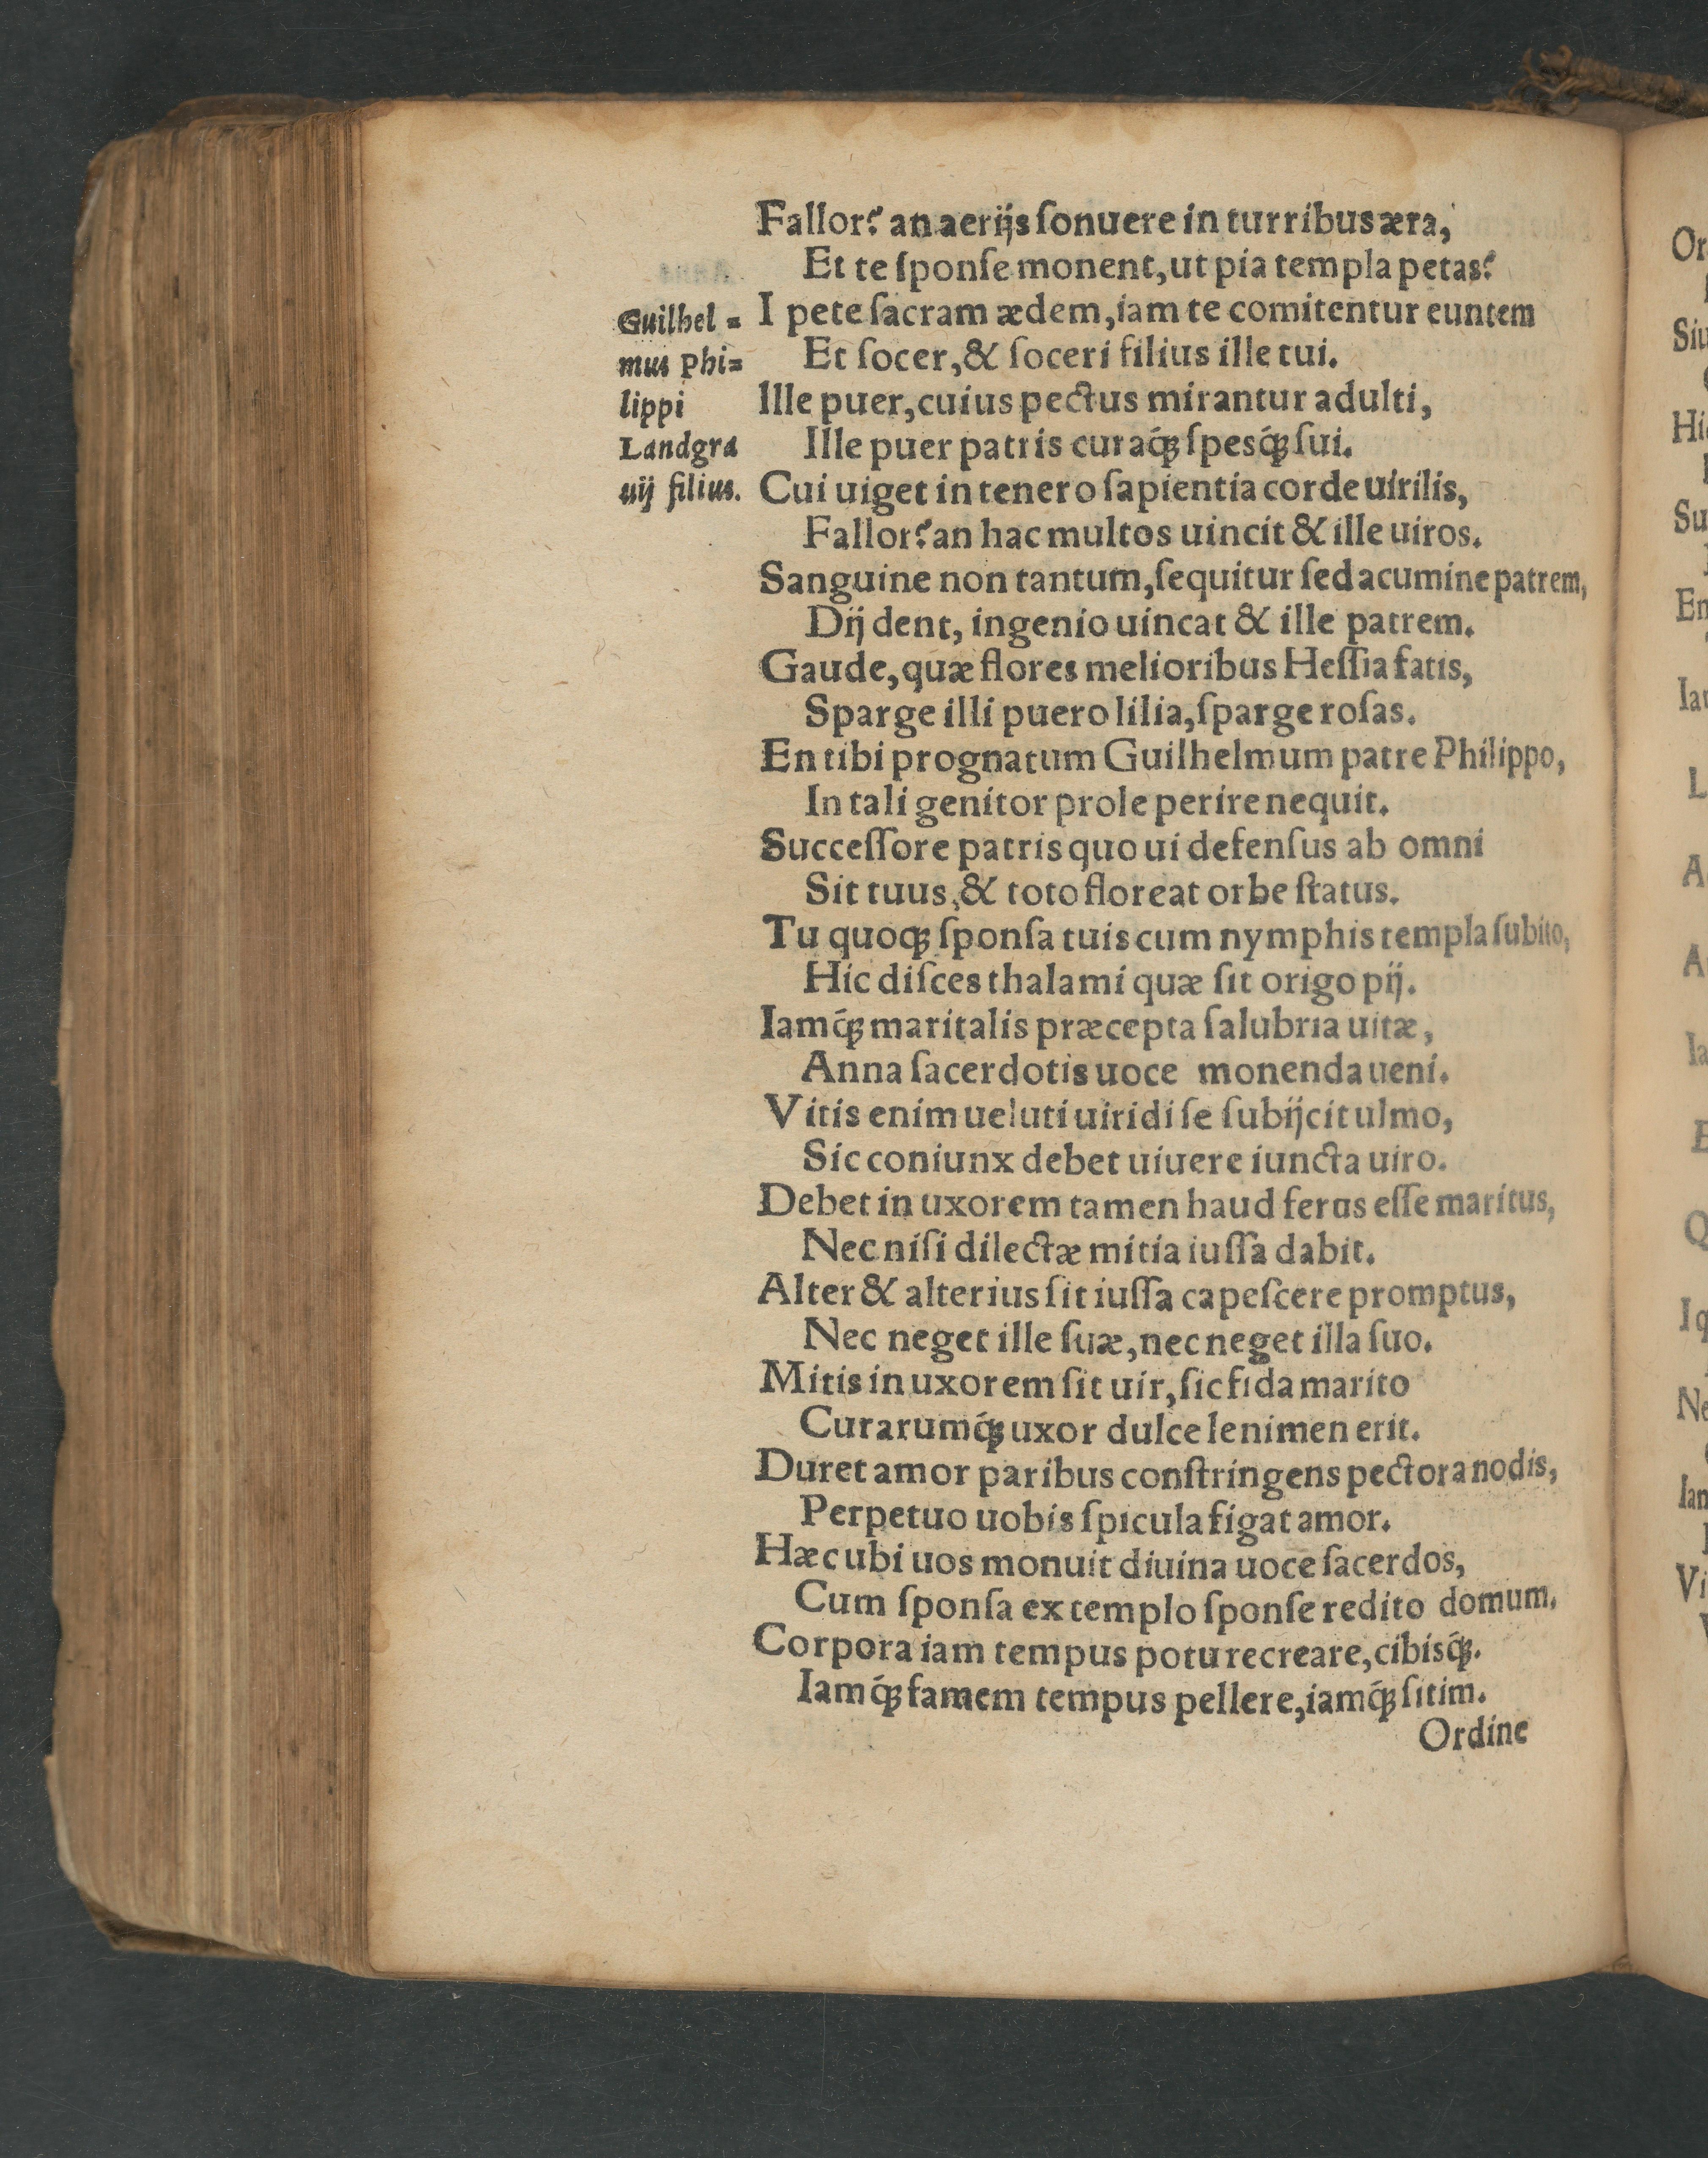 Fallor? an aerijs ſonuere in turribus æra,
Et te ſponſe monent, ut pia templa petas?
I pete ſacram ædem, iam te comitentur euntem
Et ſocer, & ſoceri filius ille tui.
Ille puer, cuius pectus mirantur adulti,
Ille puer patris curaq́ꝫ ſpesq́ꝫ ſui.
Cui uiget in tenero ſapientia corde uirilis,
Fallor? an hac multos uincit & ille uiros.
Sanguine non tantum, ſequitur ſed acumine patrem,
Dij dent, ingenio uincat & ille patrem.
Gaude, quæ flores melioribus Heſſia fatis,
Sparge illi puero lilia, ſparge roſas.
En tibi prognatum Guilhelmum patre Philippo,
In tali genitor prole perire nequit.
Succeſſore patris quo ui defenſus ab omni
Sit tuus, & toto floreat orbe ſtatus.
Tu quoqꝫ ſponſa tuis cum nymphis templa ſubito,
Hic diſces thalami quæ ſit origo pij.
Iamq́ꝫ maritalis præcepta ſalubria uitæ,
Anna ſacerdotis uoce monenda ueni.
Vitis enim ueluti uiridi ſe ſubijcit ulmo,
Sic coniunx debet uiuere iuncta uiro.
Debet in uxorem tamen haud ferus eſſe maritus,
Nec niſi dilectæ mitia iuſſa dabit.
Alter & alterius ſit iuſſa capeſcere promptus,
Nec neget ille ſuæ, nec neget illa ſuo.
Mitis in uxorem ſit uir, ſic fida marito
Curarumq́ꝫ uxor dulce lenimen erit.
Duret amor paribus conſtringens pectora nodis,
Perpetuo uobis ſpicula figat amor.
Hæc ubi uos monuit diuina uoce ſacerdos,
Cum ſponſa ex templo ſponſe redito domum.
Corpora iam tempus potu recreare, cibisq́ꝫ.
Iamq́ꝫ famem tempus pellere, iamq́ꝫ ſitim.
Ordine
Guilhel=
mus Phi=
lippi
Landgra
uij filius.